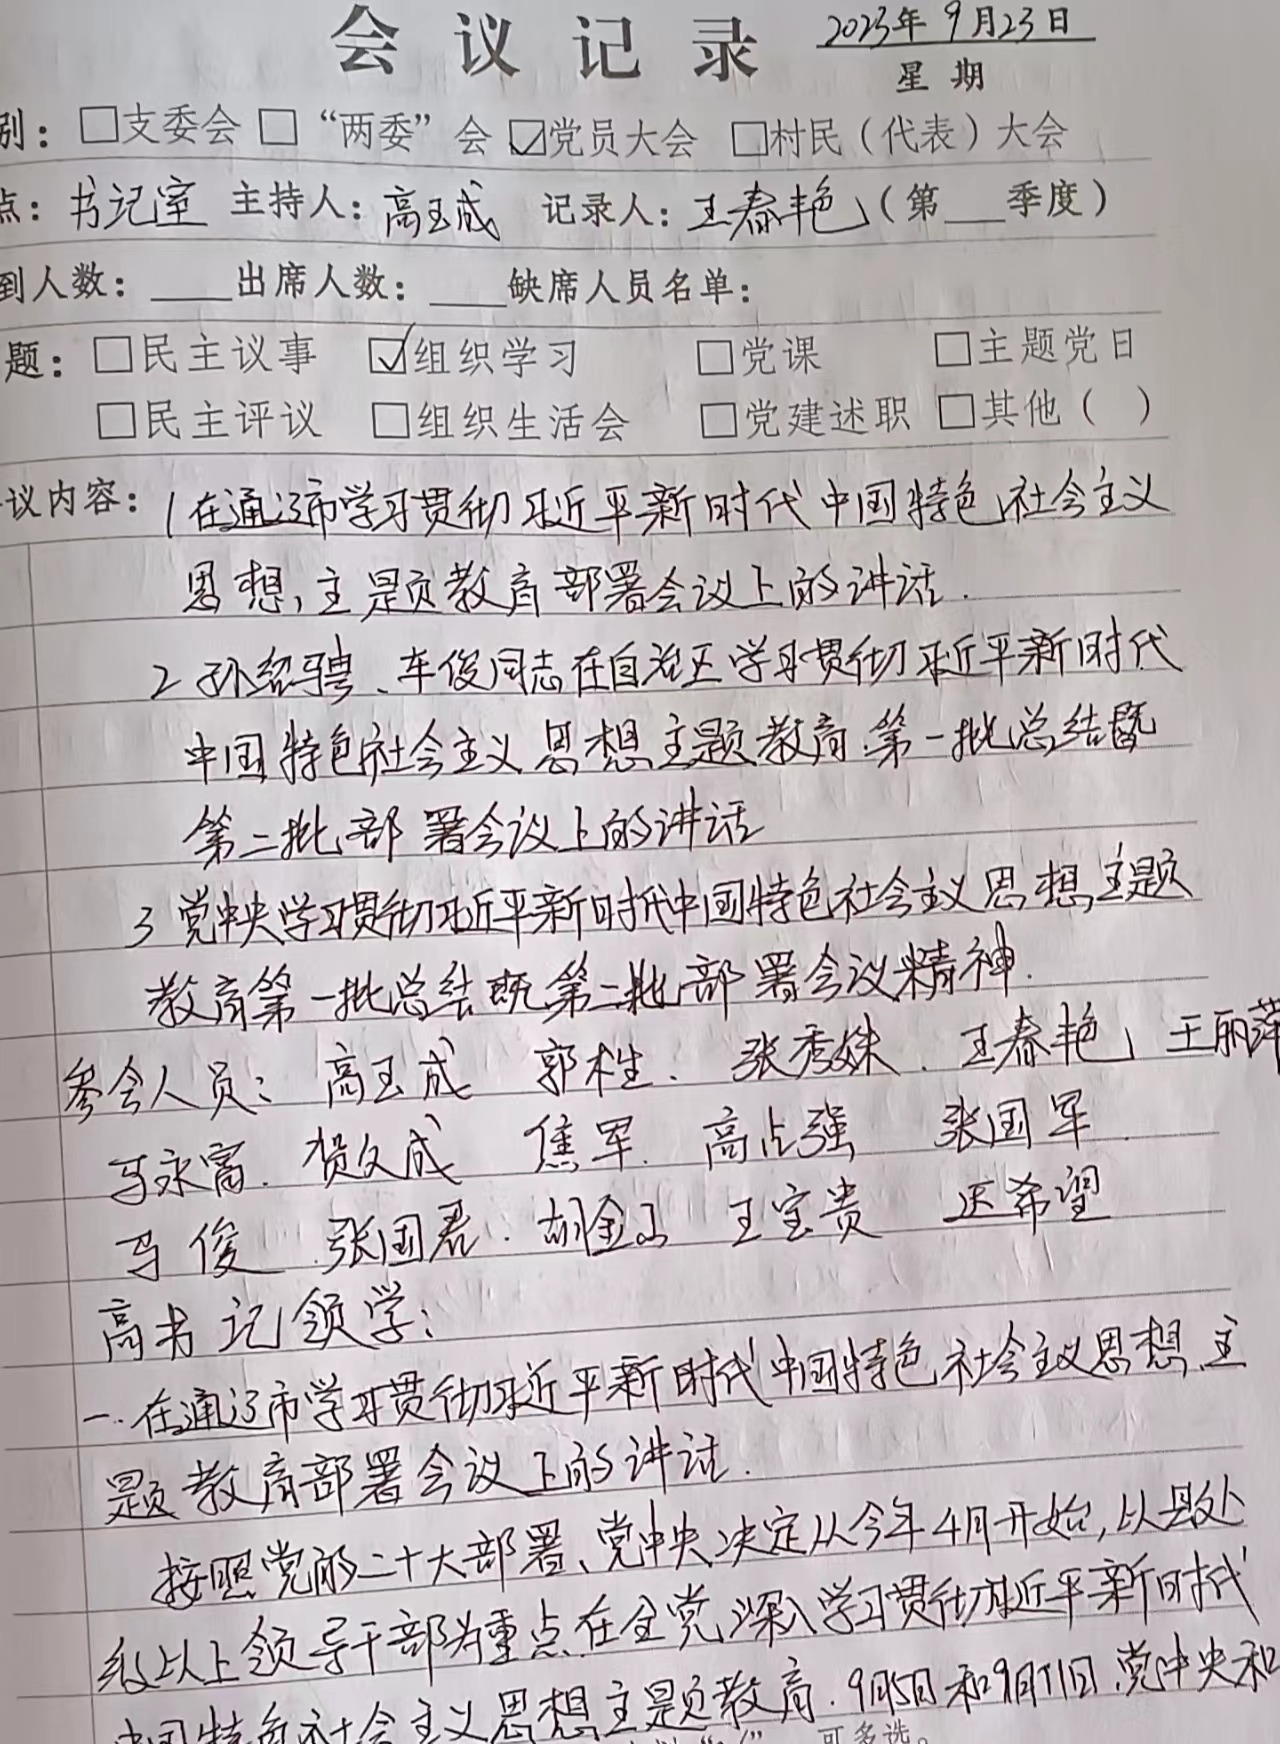 会议记录 2023年9月23日
星期
别：□支委会 □“两委”会 ☑党员大会 □村民（代表）大会
点：书记室 主持人：高玉成 记录人：王春艳（第___季度）
到人数：____出席人数：____缺席人员名单：
题：□民主议事 ☑组织学习 □党课 □主题党日
□民主评议 □组织生活会 □党建述职 □其他（ ）
议内容：1在通辽市学习贯彻习近平新时代中国特色社会主义
思想，主题教育部署会议上的讲话.
2 孙绍骋、车俊同志在自治区学习贯彻习近平新时代
中国特色社会主义思想主题教育.第一批总结暨
第二批部署会议上的讲话
3 党中央学习贯彻习近平新时代中国特色社会主义思想主题
教育第一批总结既第二批部署会议精神.
参会人员：高玉成 郭桂. 张秀姝. 王春艳 王丽萍
马永富. 贺文成 焦军. 高占强 张国军.
马俊 张国君. 胡金山 王宝贵 迟希望
高书记领学：
一.在通辽市学习贯彻习近平新时代中国特色社会主义思想主
题教育部署会议上的讲话.
按照党的二十大部署、党中央决定从今年4月开始，以县处
级以上领导干部为重点在全党深入学习贯彻习近平新时代
中国特色社会主义思想主题教育.9月5日和9月11日.党中央和
可多选。